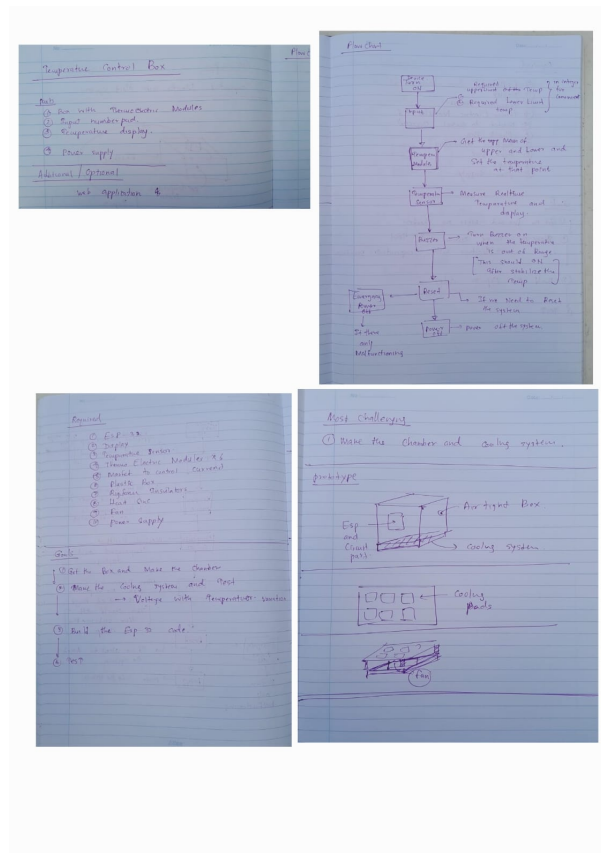 Temperature Control Box
① Box with Thermo Electric Modules
② Input number pad.
③ Temperature display.
④ Power supply
Additional / Optional
Web application
Flow Chart
Device
Turn
ON
Input
Required
upper limit of the Temp
Required Lower Limit
temp
Set the Mean of
upper and Lower and
Set the temperature
at that point
Temperature
Sensor
Measure Realtime
Temperature and
display.
Buzzer
Turn Buzzer on
when the temperature
is out of Range
This should ON
after stabilise the
temp
Reset
If we need to Reset
the system
Emergency
Power
OFF
If there
any
Malfunctioning
Power
OFF
power off the system
Required
① Esp 32
② Display
③ Temperature Sensor
④ Thermo Electric Modules x 6
⑤ Mosfet to control Current
⑥ Plastic Box
⑦ Insulators
⑧ Heat
⑨ Fan
⑩ Power Supply
Goals
① Get the Box and Make the Chamber
② Make the Cooling System and Test
→ Voltage with Temperature
③ Build the Esp 32 code
④ Test
Most Challenging
① Make the Chamber and Cooling system.
Prototype
Air tight Box
Esp
and
Cooling system
Cooling
Pads
fan